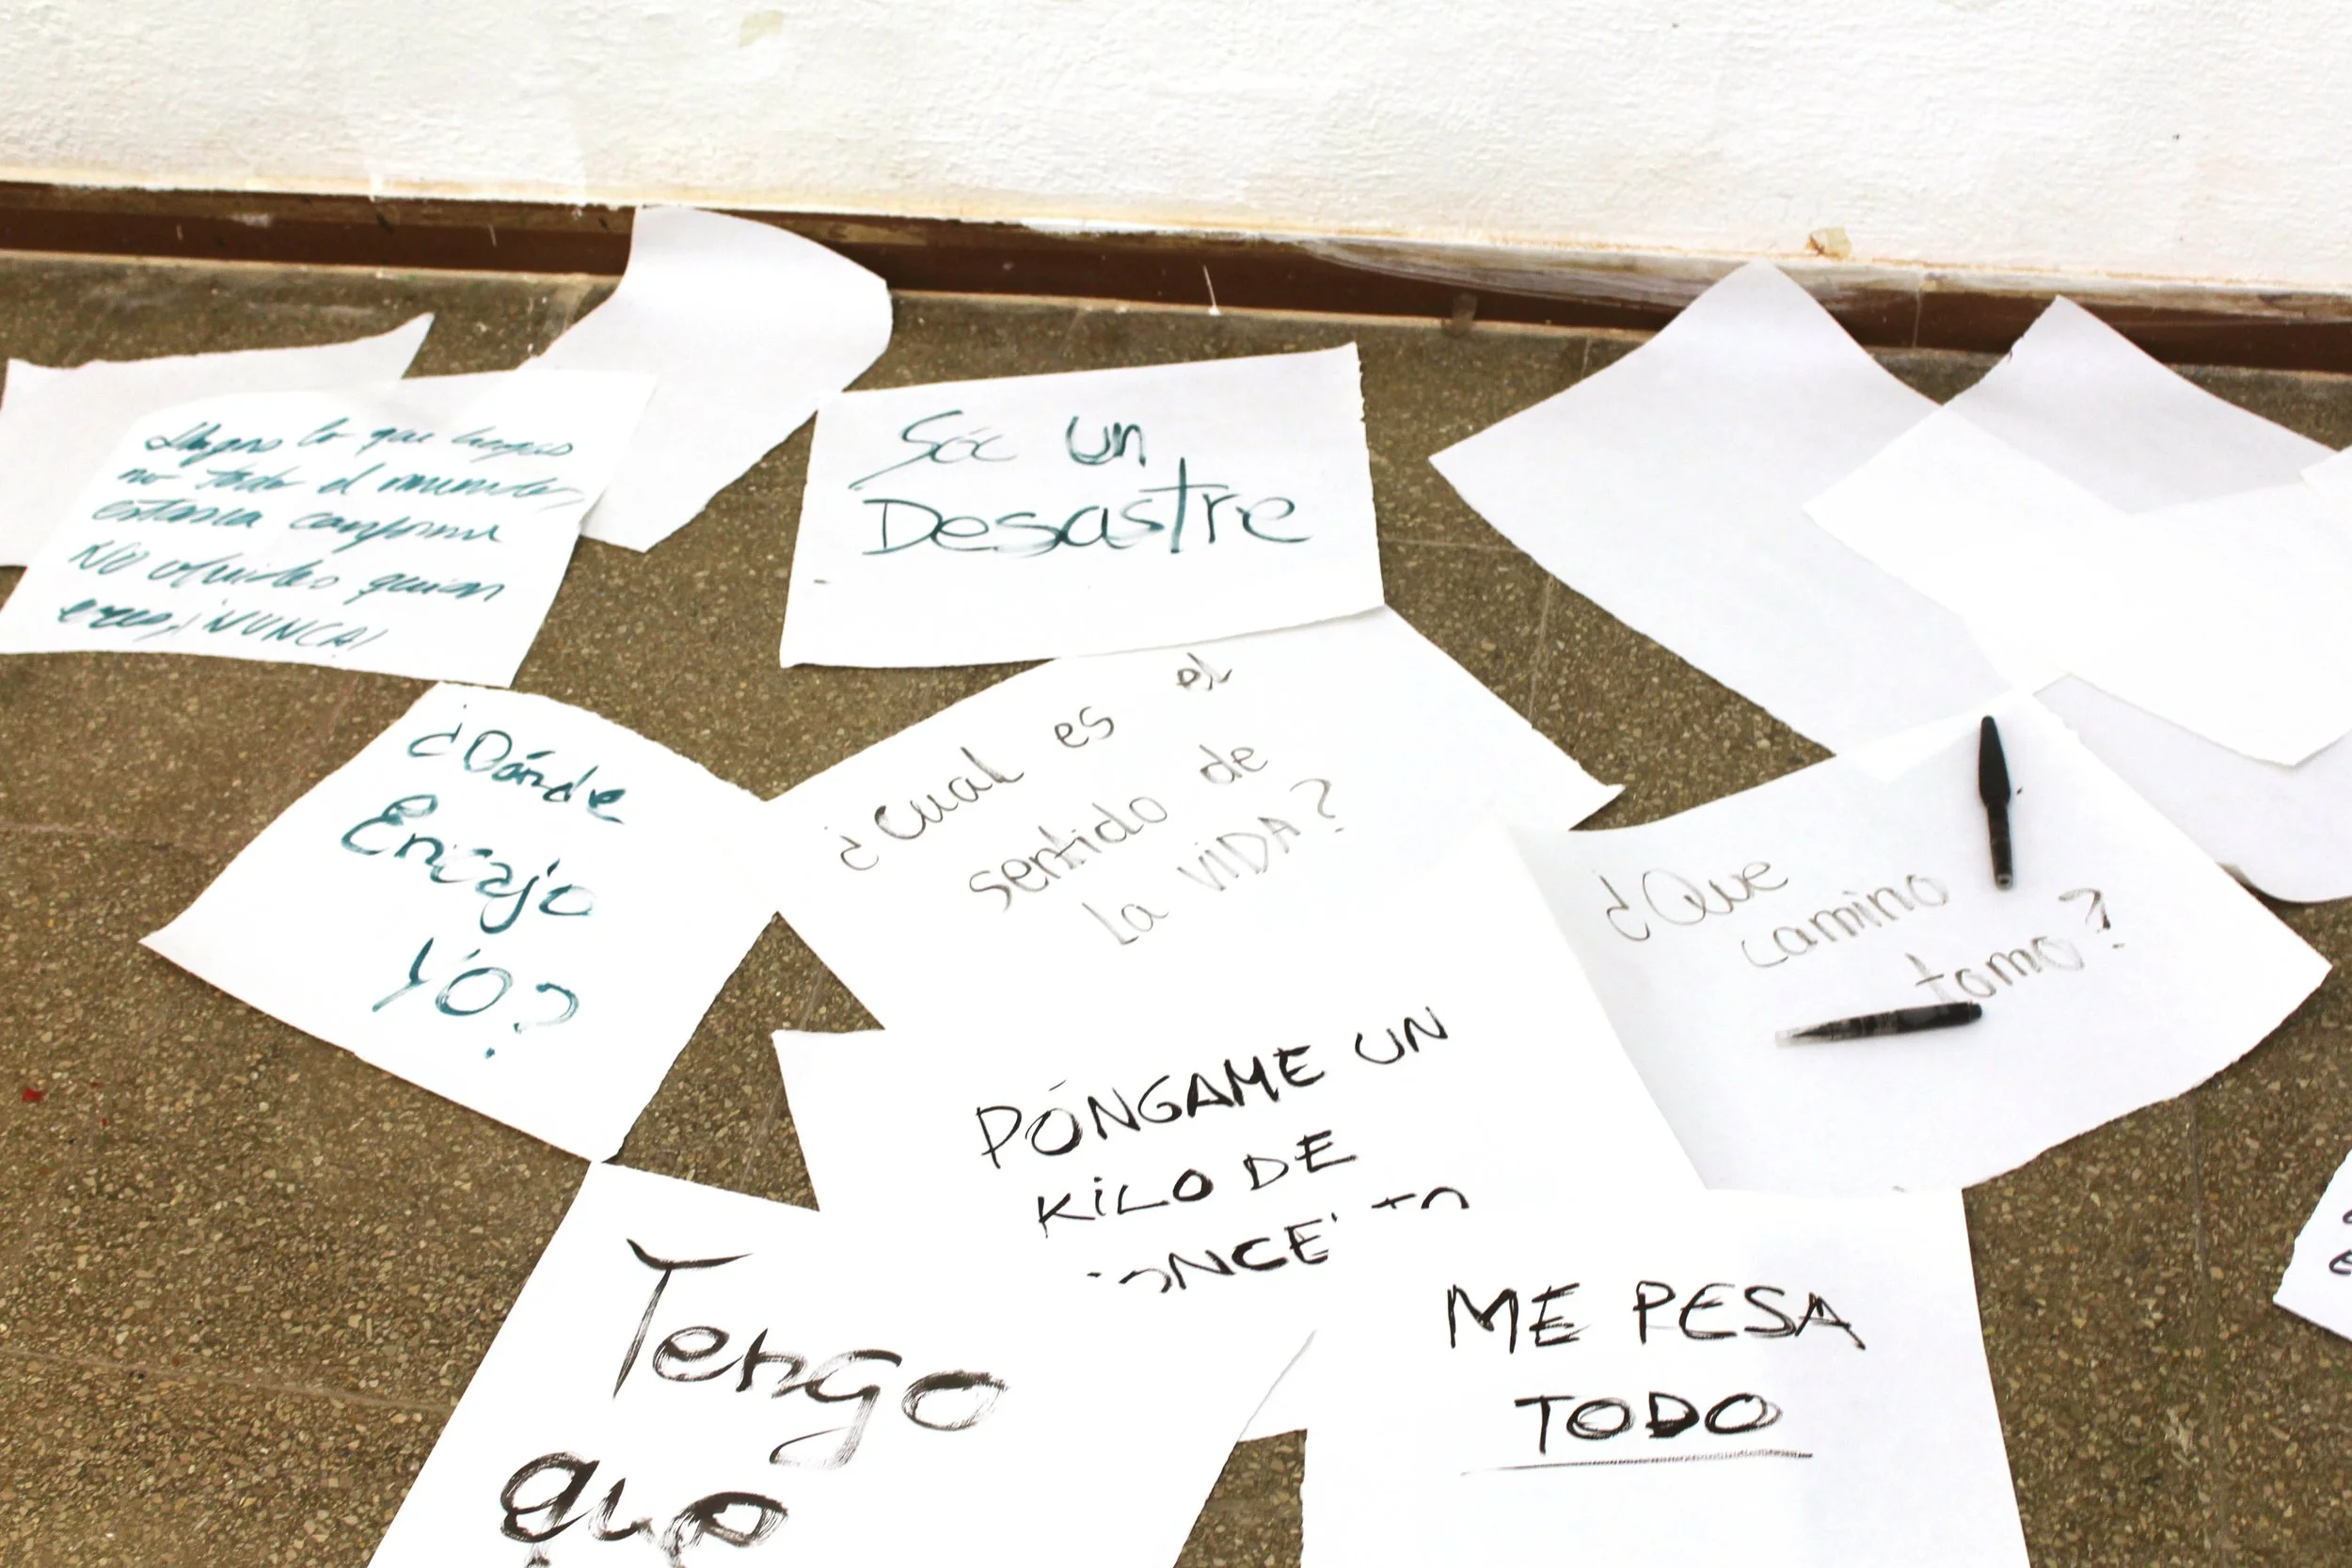 Hagas lo que hagas
no todo el mundo
estaria conforme
NO olvides quien
eres, ¡NUNCA!
Sóc un
Desastre
¿Dónde
Encajo
YO?
¿Cual es el
sentido de
la VIDA?
¿Que
camino
tomo?
PÓNGAME UN
KILO DE
Tengo
que
ME PESA
TODO